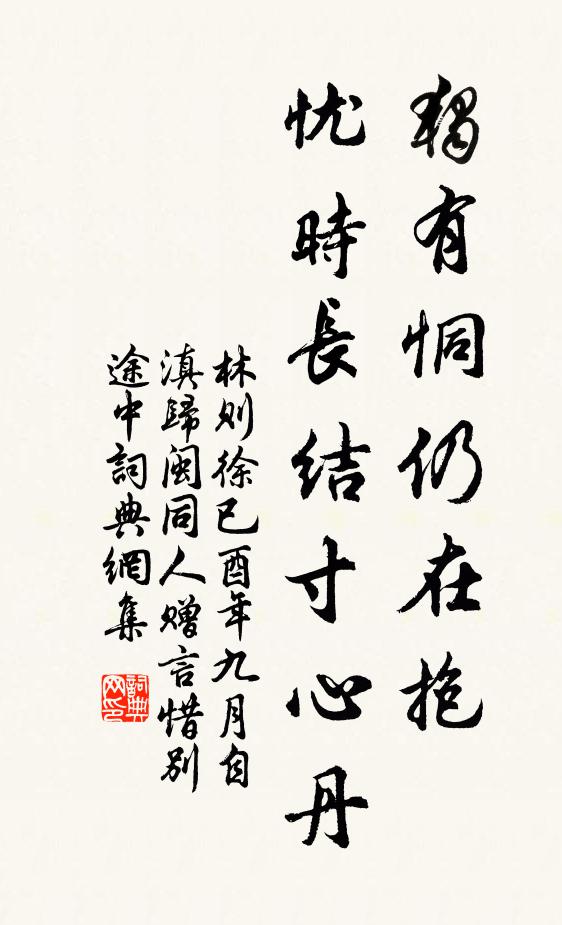 獨有恫仍在抱
忧時長結寸心丹
林則徐己酉年九月自
滇歸閩同人贈言惜别
途中詞典網集
詞典网印